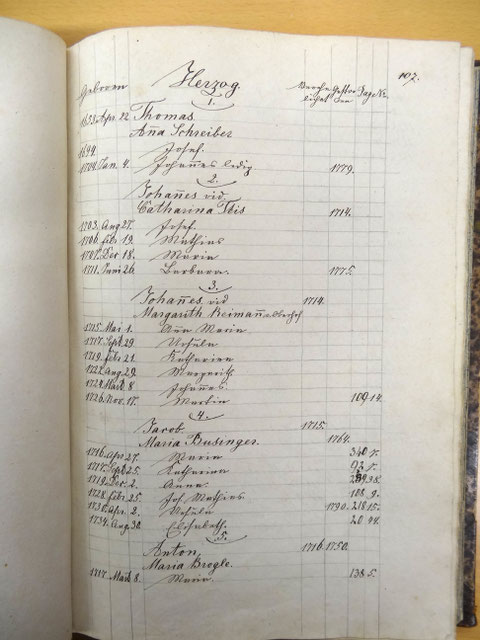 107.
Geboren Herzog. Verehe- Gestor- Pag. No.
licht ben
1.
1653. Apr 22 Thomas.
Aña Schreiber
1694. Josef.
1704. Jan. 4. Johañes ledig. 1779.
2.
Johañes vid.
Catharina 1714.
1703. Aug 27. Josef.
1706. febr 19. Mathias
1707. Dec 18. Maria
1711. Juni 26. Barbara. 1775.
3.
Johañes vid 1714.
Margarith Reimañ
1715. Mai 1. Aña Maria
1717. Sept 29. Ursula
1719. febr 21. Katharina
1722. Aug 29. Margarith
1724. Merz 8 Johañes.
1726. Nov. 17. Martin 109 14
4.
Jacob 1715.
Maria Businger. 1764.
1716. Apr 27. Maria 340 7.
1717. Sept 25. Katharina 92 5.
1719. Dec. 2. Anna. 38.
1728. febr. 25 Jos. Mathias 188. 9.
1730. Apr. 2. Ursula 1790. 218 15.
1734. Aug 30 Elisabeth. 20 44.
5.
Anton. 1716. 1750.
Maria Brogle.
1717. Merz 8. Maria. 138 5.